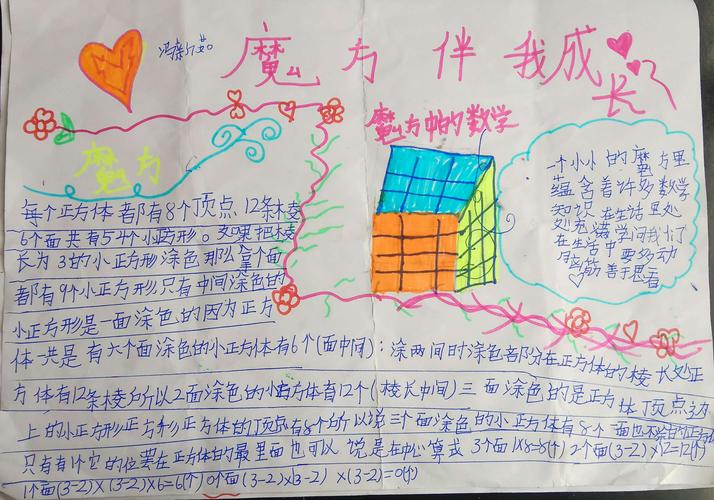 魔方伴我成长
魔方中的数学
魔方
一个小小的魔方里
蕴含着许多数学
知识在生活里处
处充满学问我们
在生活中要多动
脑筋善于思考
每个正方体都有8个顶点12条棱
6个面共有54个小方形。如果把棱
长为3的小正方形涂色那么每个面
都有9个小正方形,只有中间涂色的
小正方形是一面涂色的因为正方
体一共是有六个面涂色的小正方体有6个(面中间):涂两间时涂色部分在正方体的棱长处正
方体有12条棱所以2面涂色的小方体有12个(棱长中间)三面涂色的是正方体顶点
上的小正方形正方形正方体的顶点有8个所以说三个面涂色的小正方体有8个
只有有1个它的位置在正方体的最里面也可以说是在中心算式3个面1×8=8(个)2个面(3-2)×12=12(个)
1个面(3-2)×(3-2)×6=6(个)0个面(3-2)×(3-2)×(3-2)=0(个)